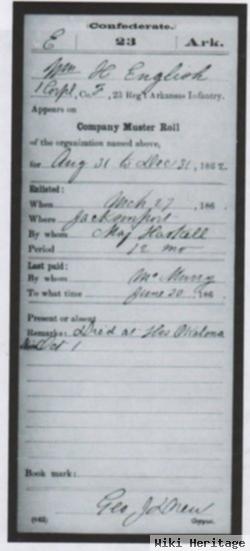 Confederate.
E 23 Ark.
Wm H. English
1 Corpl, Co. , 23 Reg't Arkansas Infantry.
Appears on
Company Muster Roll
of the organization named above,
for Aug 31 to Dec 31, 1862
Enlisted:
When Mch 27, 186
Where Jacksonport
By whom Maj Haskell
Period 12 mo
Last paid:
By whom McMurry
To what time June 30, 186
Present or absent
Remarks: Died at Hos Okolona
Oct 1
Book mark:
Geo J Drew
(642) Copyist.
Wiki Heritage